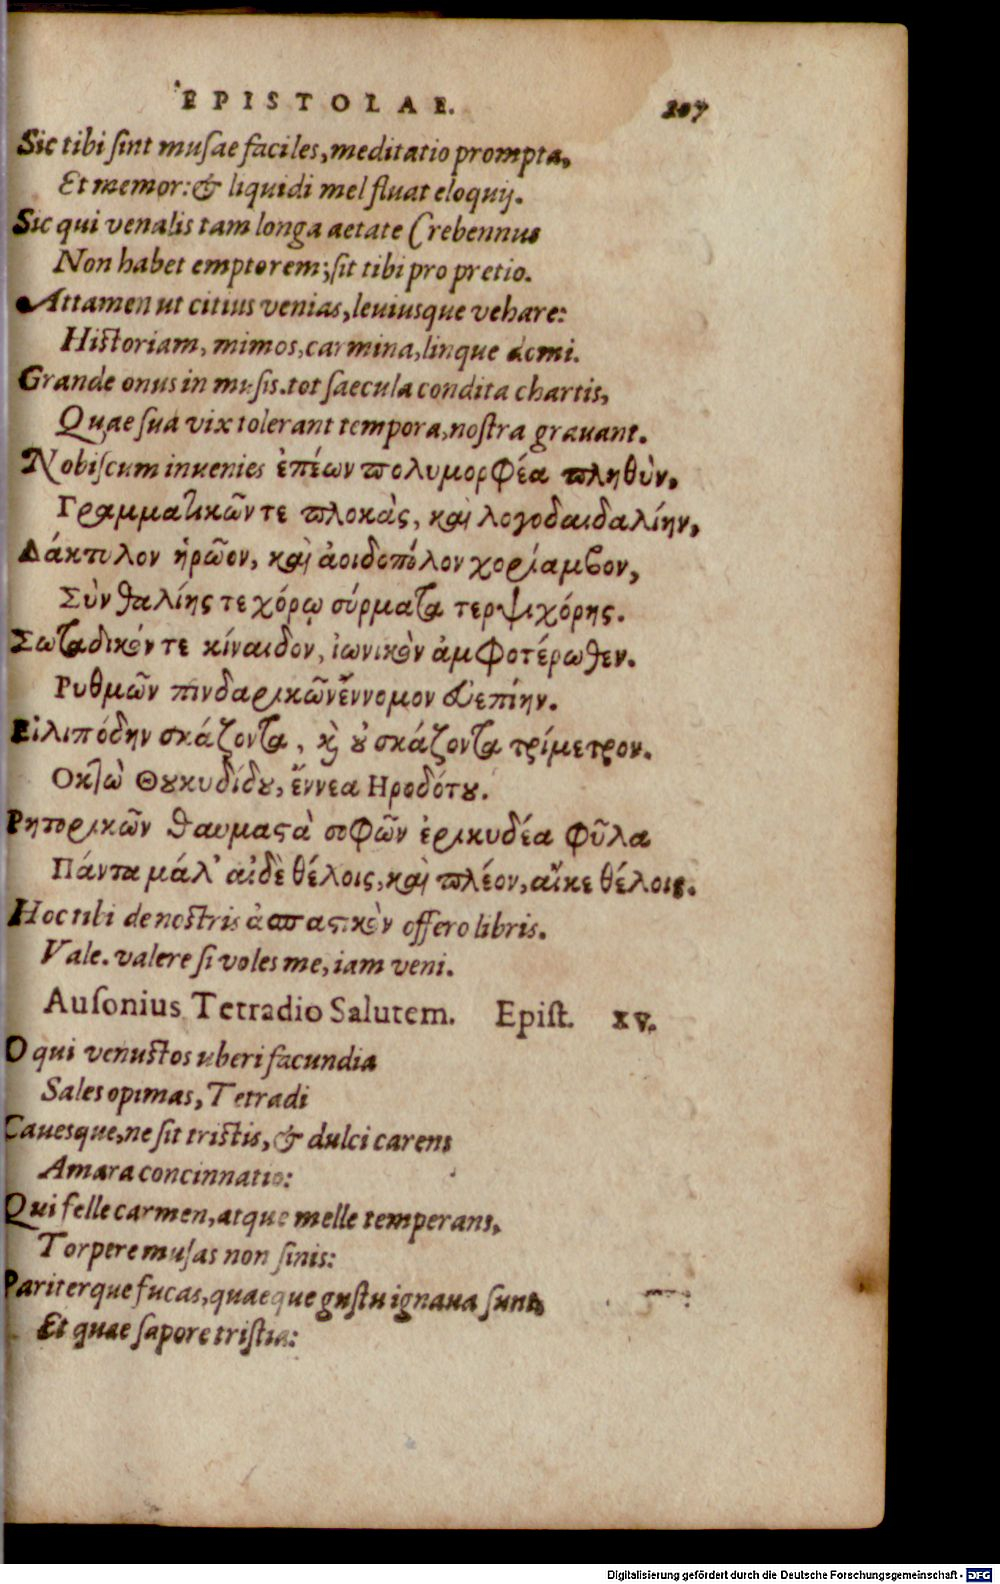 EPISTOLAE. 207
Sic tibi sint musae faciles, meditatio prompta,
Et memor: & liquidi mel fluat eloquij.
Sic qui venalis tam longa aetate Crebennus
Non habet emptorem; sit tibi pro pretio.
Attamen ut citius venias, leuiusque vehare:
Historiam, mimos, carmina, linque domi.
Grande onus in musis. tot saecula condita chartis,
Quae sua vix tolerant tempora, nostra grauant.
Nobiscum inuenies ἐπέων πολυμορφέα πληθὺν,
Γραμματικῶν τε πλοκὰς, καὶ λογοδαιδαλίην,
Δάκτυλον ἡρῶον, καὶ ἀοιδοπόλον χορίαμβον,
Σὺν θαλίης τε χόρῳ σύρματα τερψιχόρης.
Σωταδικόν τε κίναιδον, ἰωνικὸν ἀμφοτέρωθεν.
Ρυθμῶν πινδαρικῶν ἔννομον εὐεπίην.
Εἰλιπόδην σκάζοντα, καὶ οὐ σκάζοντα τρίμετρον.
Οκτὼ Θουκυδίδου, ἔννεα Ηροδότου.
Ρητορικῶν θαυμαστὰ σοφῶν ἐρικυδέα φῦλα
Πάντα μάλ' αἰδὲ θέλοις, καὶ πλέον, αἴκε θέλοις.
Hoc tibi de nostris ἀσπαστικὸν offero libris.
Vale. valere si voles me, iam veni.
Ausonius Tetradio Salutem. Epist. XV.
O qui venustos uberi facundia
Sales opimas, Tetradi
Cauesque, ne sit tristis, & dulci carens
Amara concinnatio:
Qui felle carmen, atque melle temperans,
Torpere musas non sinis:
Pariterque fucas, quaeque gustu ignaua sunt,
Et quae sapore tristia:
Digitalisierung gefördert durch die Deutsche Forschungsgemeinschaft - DFG